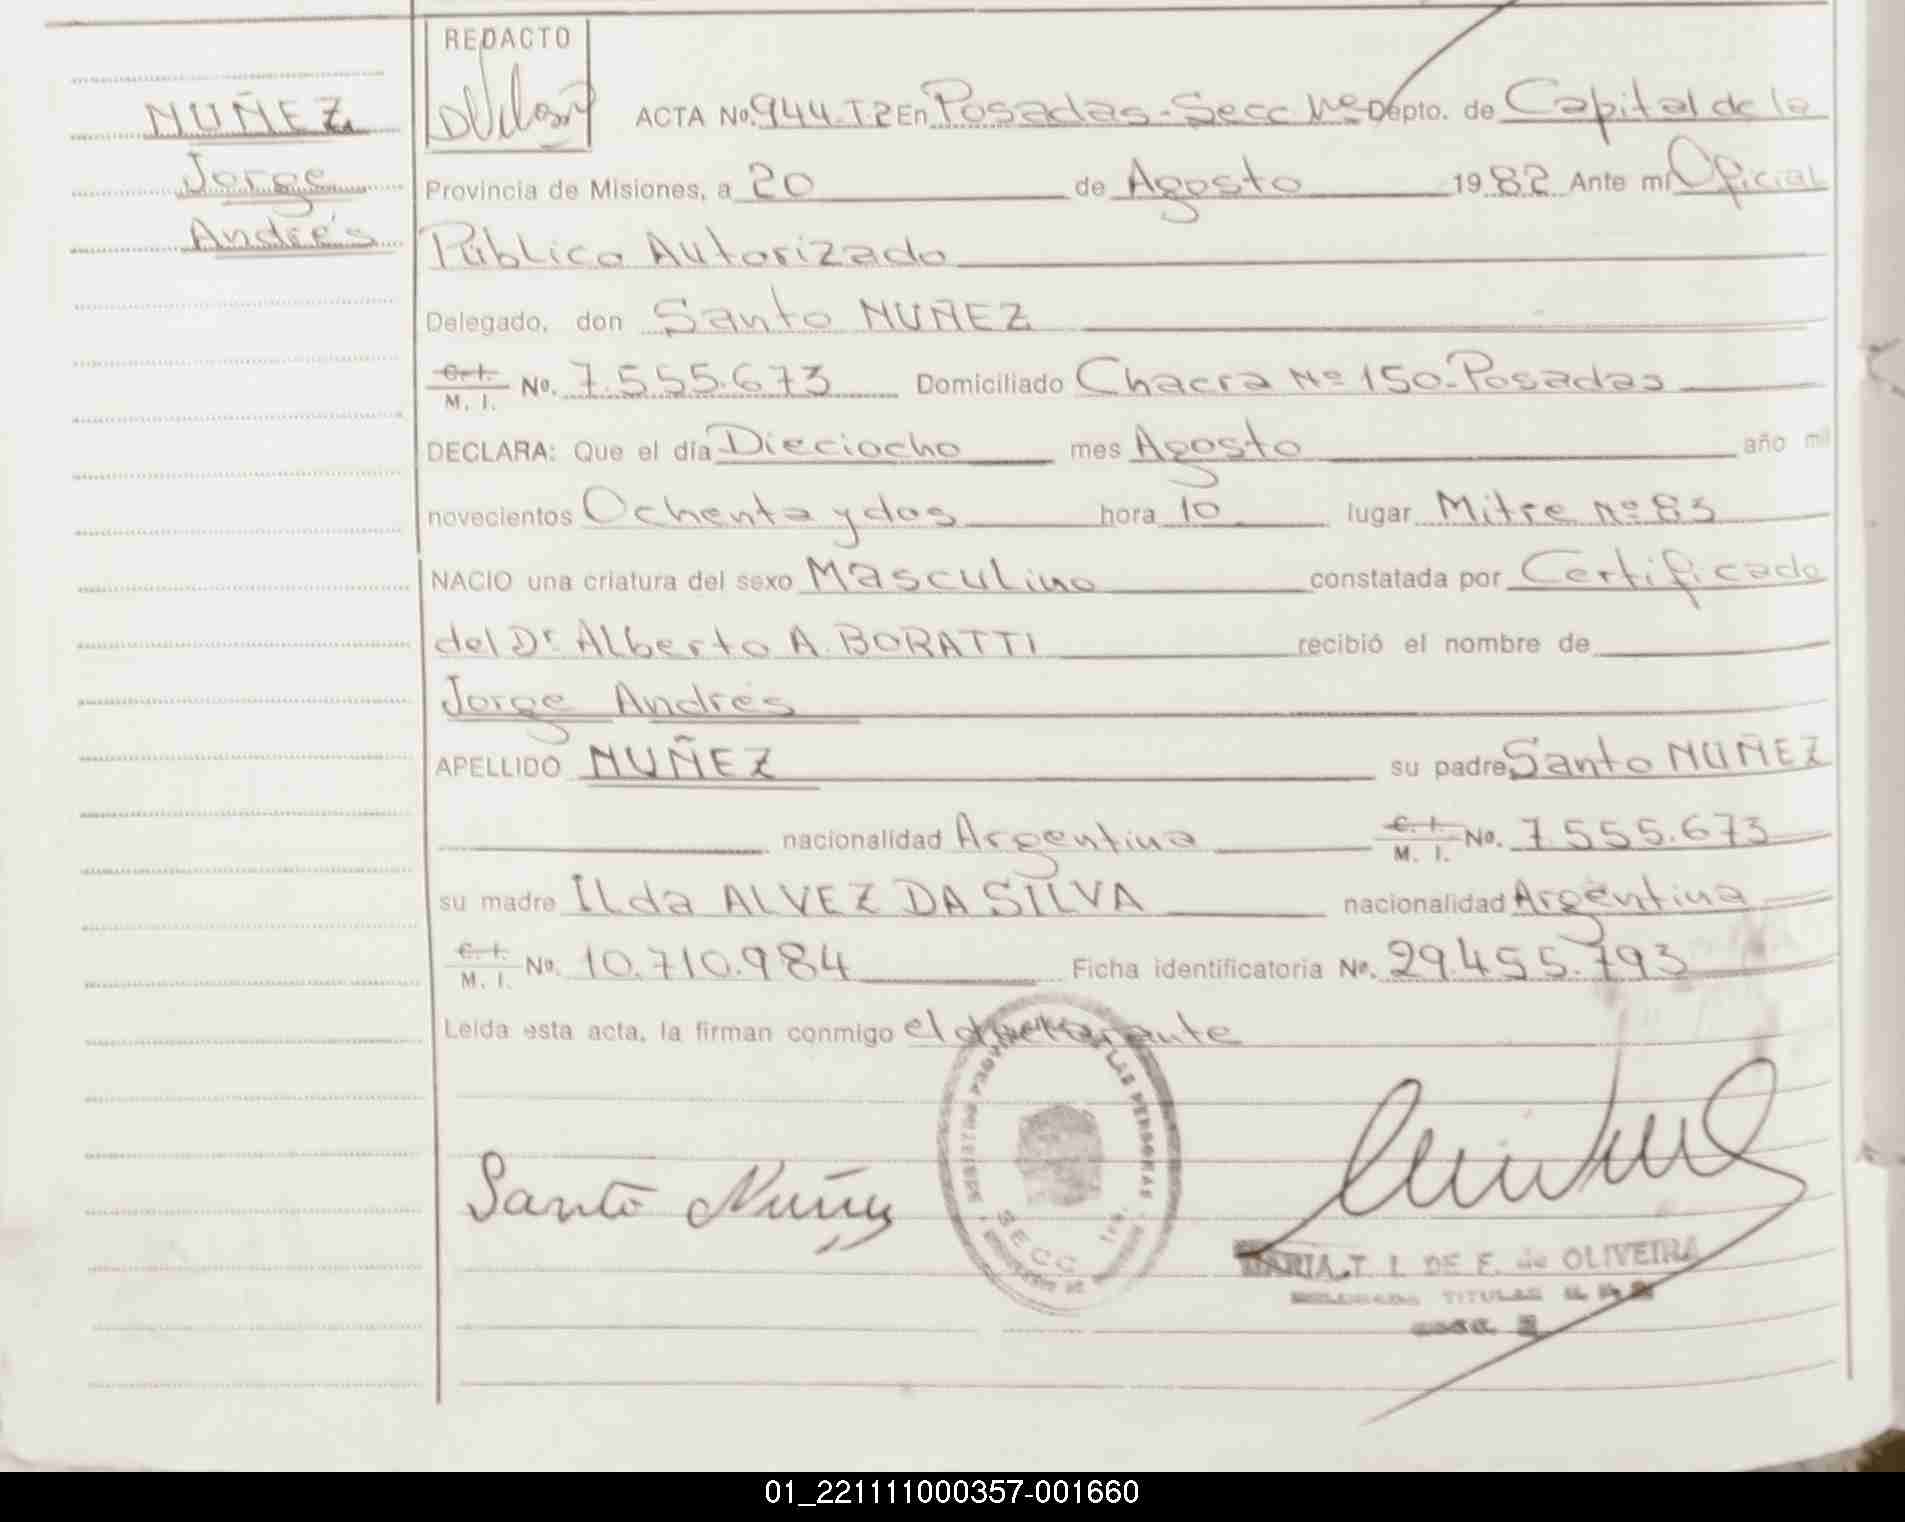 REDACTO
NUÑEZ
Jorge
Andrés
ACTA No. 944.T.2 En Posadas-Secc Nº Depto. de Capital de la
Provincia de Misiones, a 20 de Agosto 1982 Ante mi Oficial
Público Autorizado
Delegado, don Santo NUÑEZ
C. I. / M. I. No. 7.555.673 Domiciliado Chacra Nº 150-Posadas
DECLARA: Que el día Dieciocho mes Agosto año mil
novecientos Ochenta y dos hora 10 lugar Mitre Nº 83
NACIO una criatura del sexo Masculino constatada por Certificado
del Dr Alberto A. BORATTI recibió el nombre de
Jorge Andrés
APELLIDO NUÑEZ su padre Santo NUÑEZ
nacionalidad Argentina C. I. / M. I. No. 7.555.673
su madre Ilda ALVEZ DA SILVA nacionalidad Argentina
C. I. / M. I. No. 10.710.984 Ficha identificatoria No. 29.455.793
Leída esta acta, la firman conmigo el declarante
LAS PERSONAS
SECC 1ra.
Santo Nuñez
MARIA T. I. DE F. de OLIVEIRA
TITULAR
01_221111000357-001660